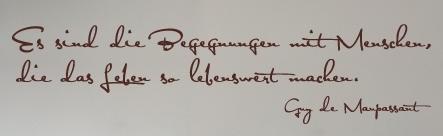 Es sind die Begegnungen mit Menschen,
die das Leben so lebenswert machen.
Guy de Maupassant